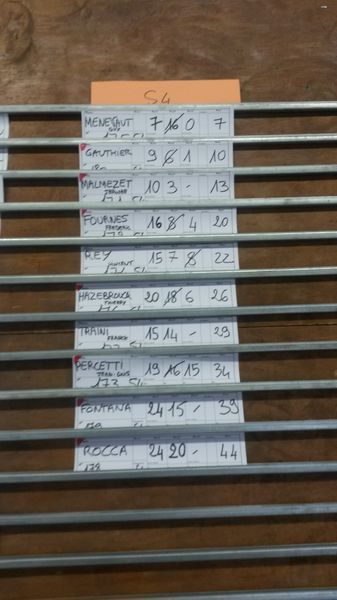 S4
MENEGAUT 7 16 0 7
GUY
GAUTHIER 9 6 1 10
MALMEZET 10 3 - 13
FOURNES 16 8 4 20
FREDERIC
REY 15 7 8 22
LAURENT
HAZEBROUCK 20 18 6 26
THIERRY
TRAINI 15 14 - 29
FRANCK
PERCETTI 19 16 15 34
JEAN-LOUIS
173
FONTANA 24 15 - 39
ROCCA 24 20 - 44